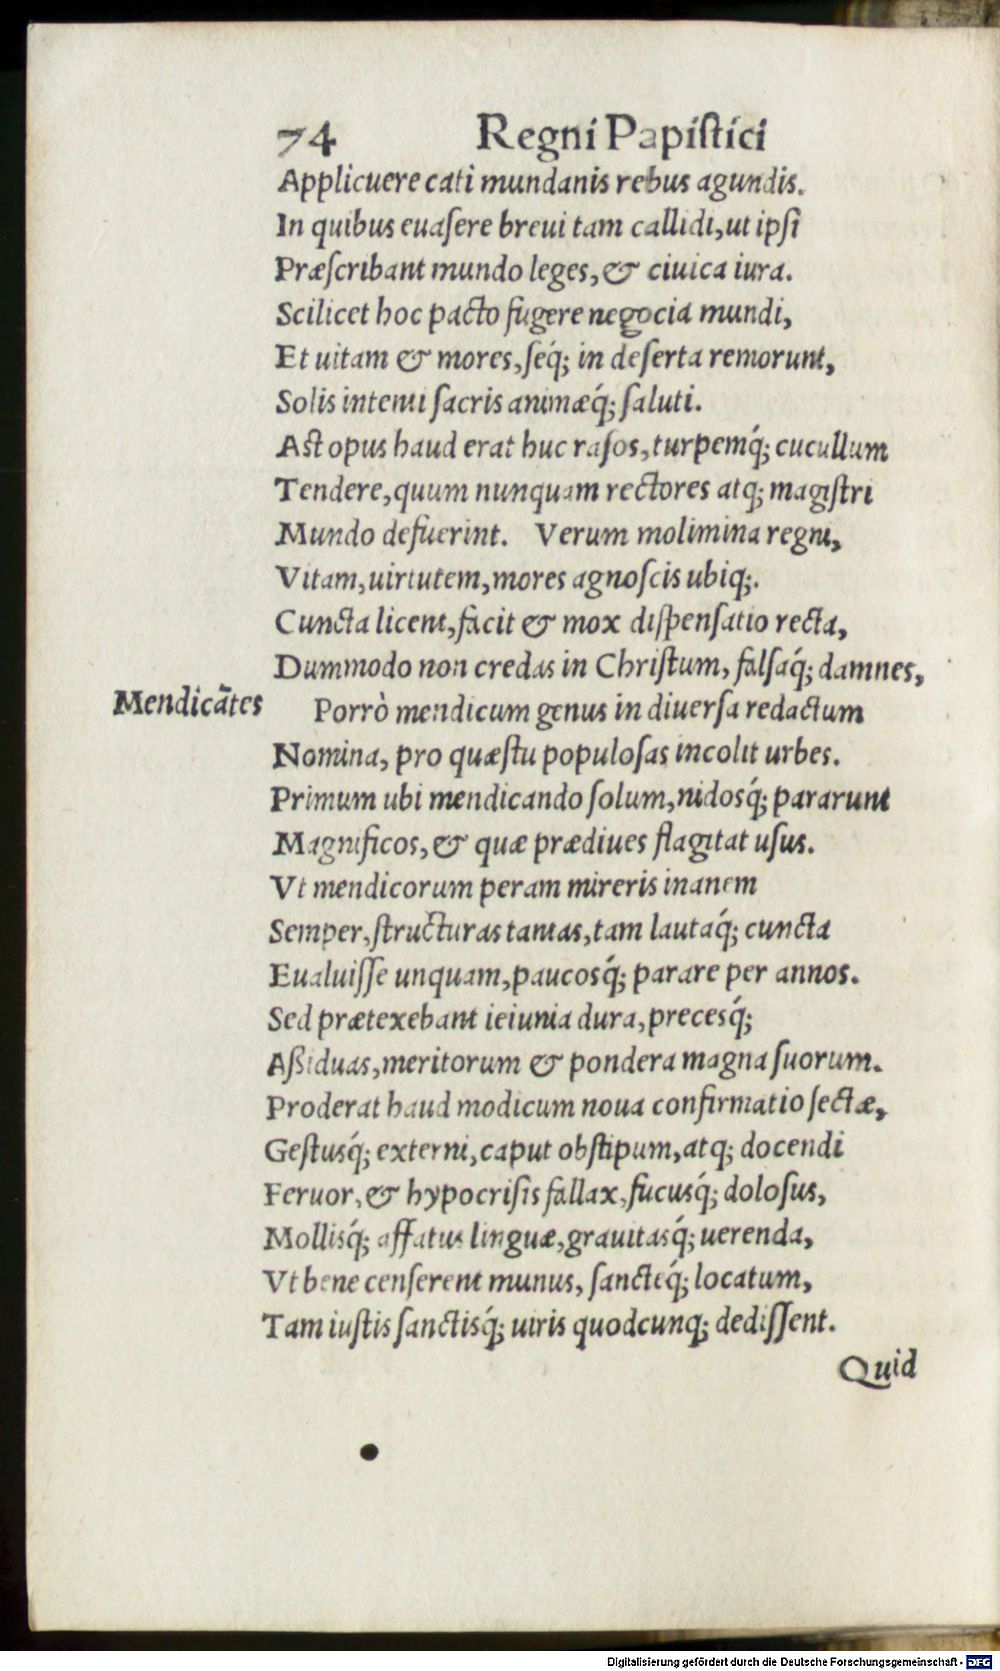 74 Regni Papiſtici
Applicuere cati mundanis rebus agundis.
In quibus euaſere breui tam callidi, ut ipſi
Præſcribant mundo leges, & ciuica iura.
Scilicet hoc pacto fugere negocia mundi,
Et uitam & mores, ſeq́; in deſerta remorunt,
Solis intenti ſacris animæq́; ſaluti.
Aſt opus haud erat huc raſos, turpemq́; cucullum
Tendere, quum nunquam rectores atq; magiſtri
Mundo defuerint. Verum molimina regni,
Vitam, uirtutem, mores agnoſcis ubiq;.
Cuncta licent, facit & mox diſpenſatio recta,
Dummodo non credas in Chriſtum, falſaq́; damnes,
Mendicãtes
Porrò mendicum genus in diuerſa redactum
Nomina, pro quæſtu populoſas incolit urbes.
Primum ubi mendicando ſolum, nidosq́; pararunt
Magnificos, & quæ prædiues flagitat uſus.
Vt mendicorum peram mireris inanem
Semper, ſtructuras tantas, tam lautaq́; cuncta
Eualuiſſe unquam, paucosq́; parare per annos.
Sed prætexebant ieiunia dura, precesq́;
Aßiduas, meritorum & pondera magna ſuorum.
Proderat haud modicum noua confirmatio ſectæ,
Geſtusq́; externi, caput obſtipum, atq; docendi
Feruor, & hypocriſis fallax, fucusq́; doloſus,
Mollisq́; affatus linguæ, grauitasq́; uerenda,
Vt bene cenſerent munus, ſancteq́; locatum,
Tam iuſtis ſanctisq́; uiris quodcunq; dediſſent.
Quid
Digitalisierung gefördert durch die Deutsche Forschungsgemeinschaft - DFG